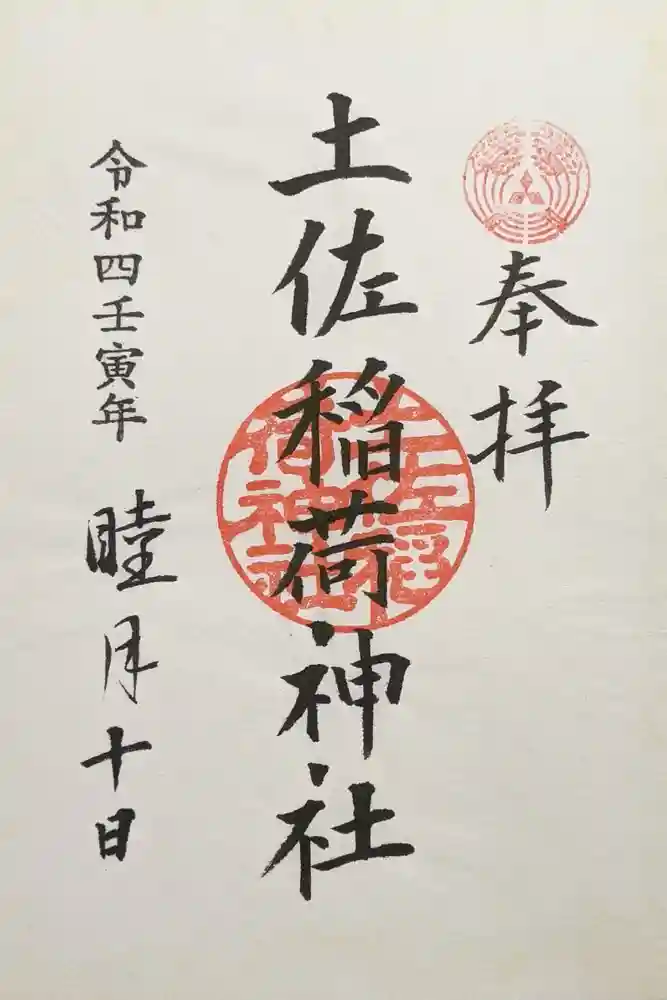 奉拝
土佐稲荷神社
土佐稲荷神社
令和四壬寅年 睦月十日